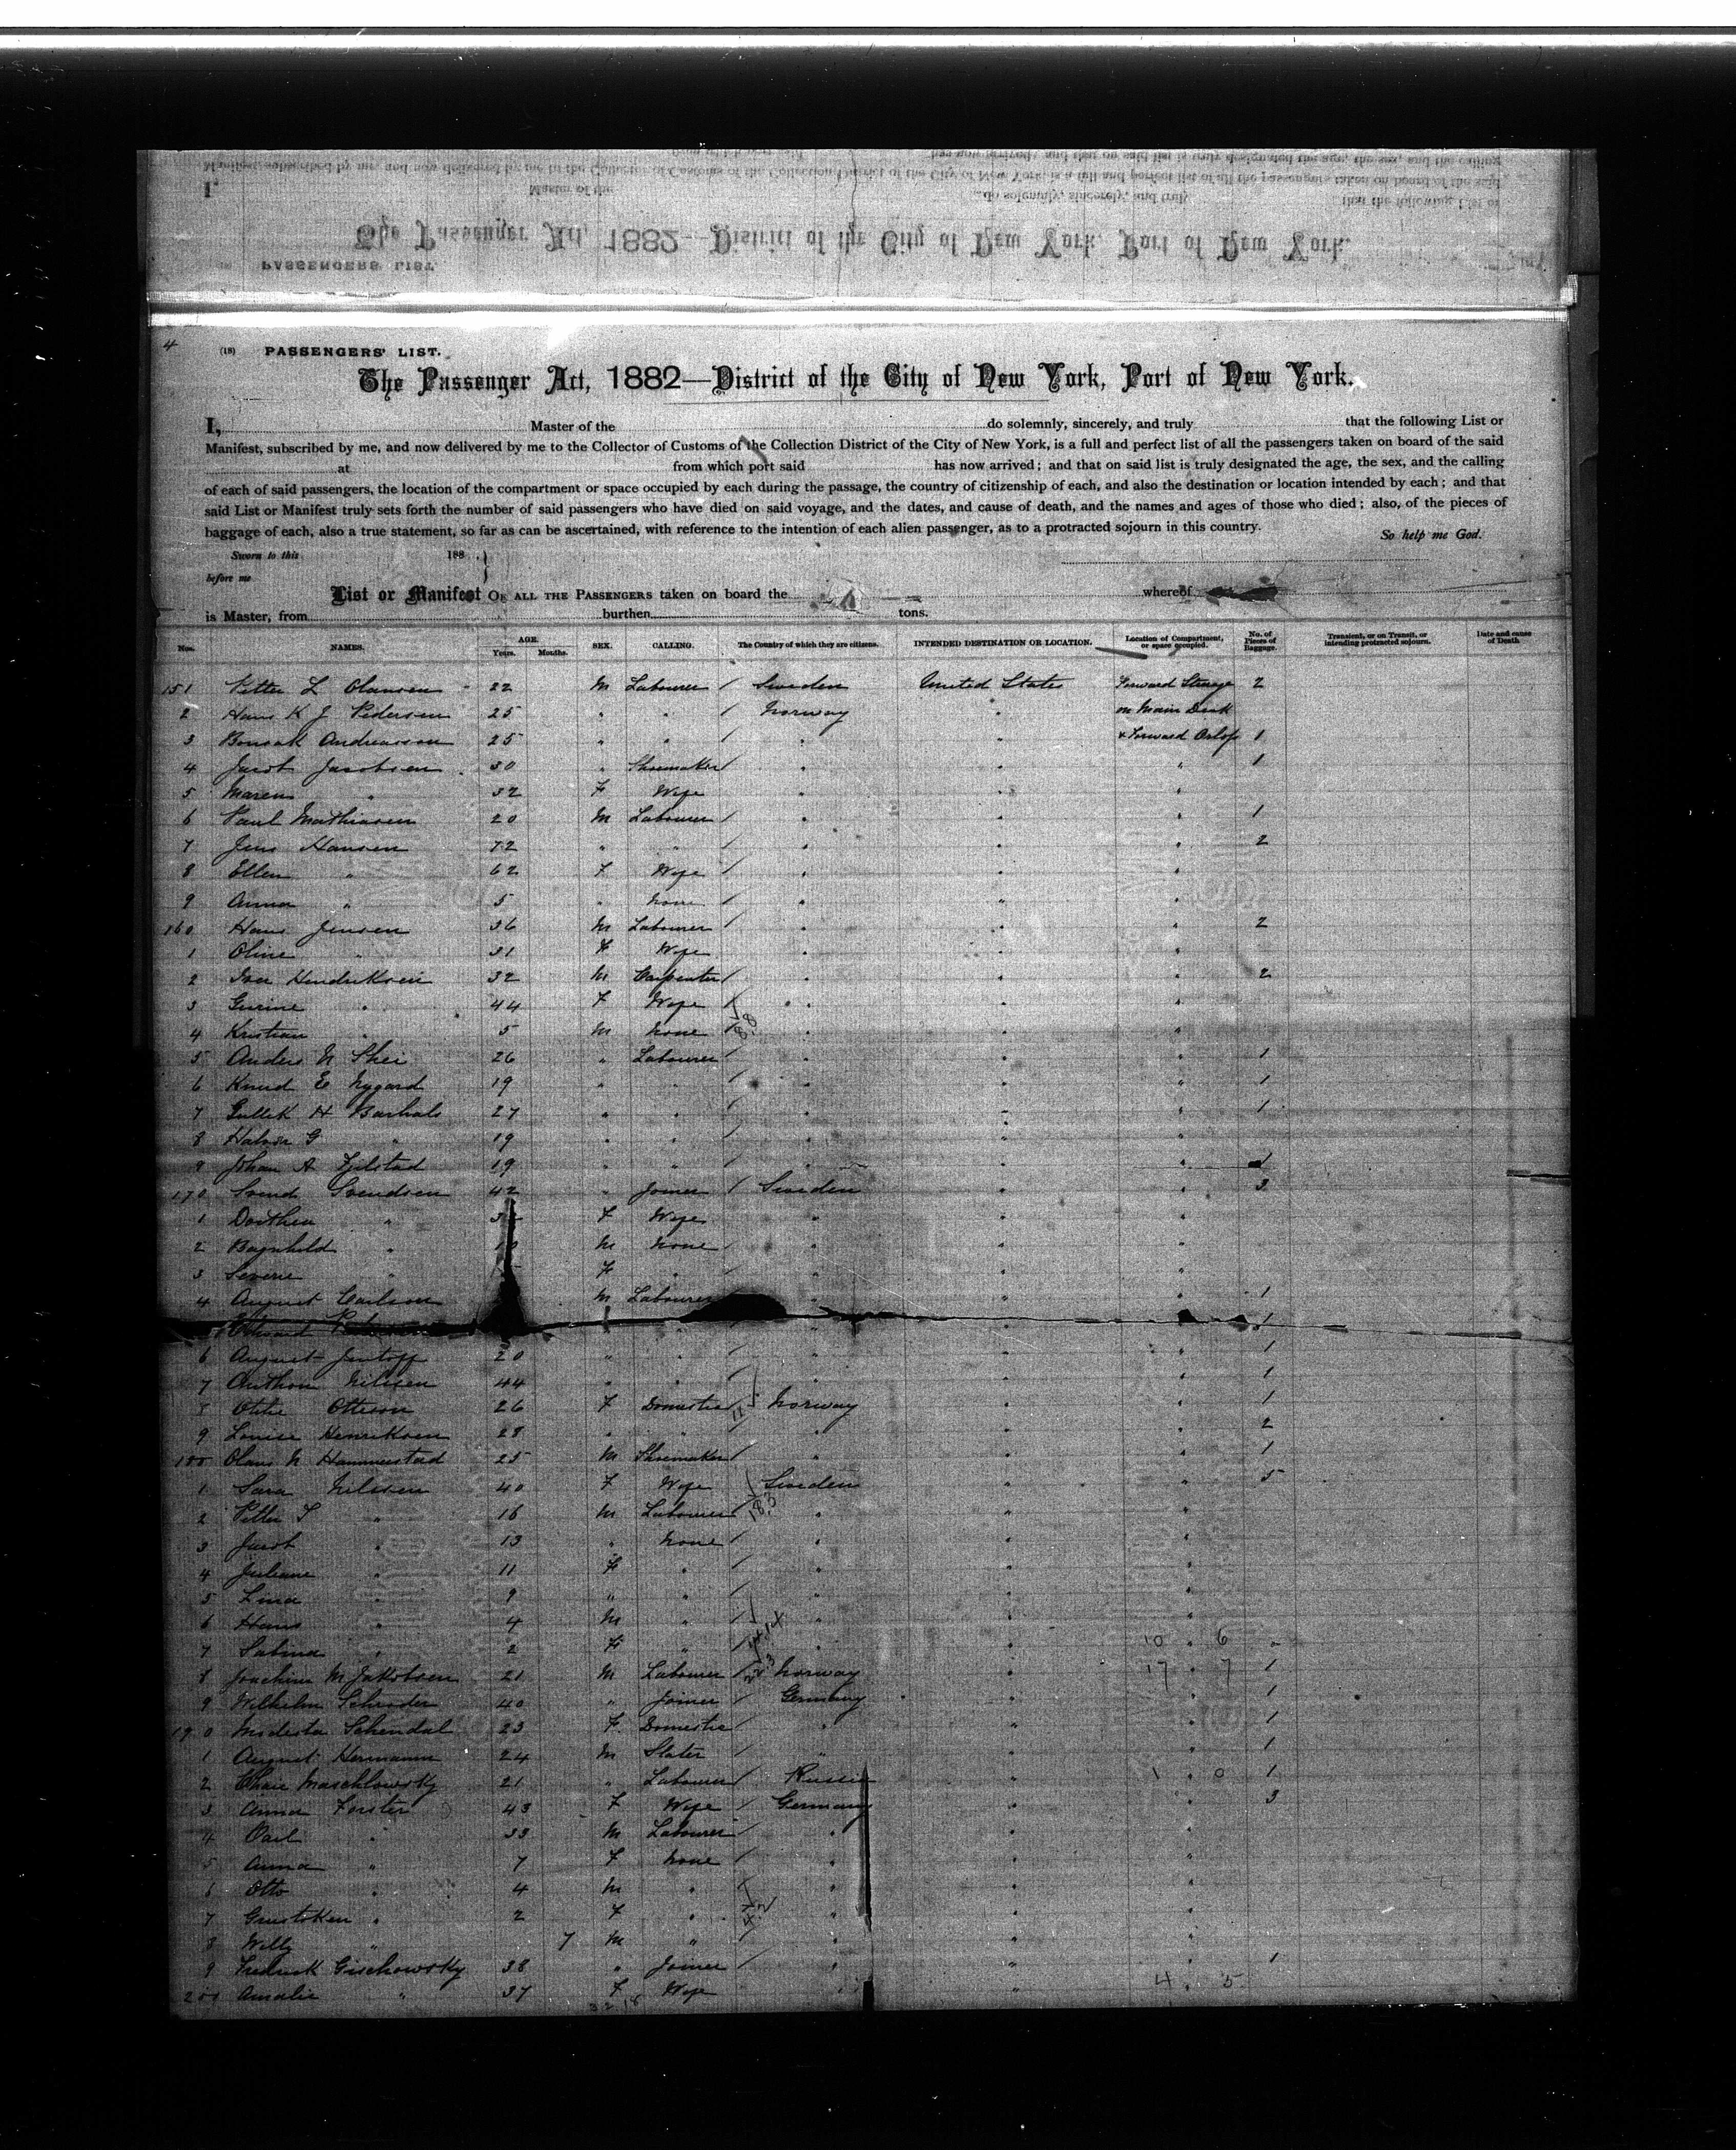 4
(18) PASSENGERS' LIST.
The Passenger Act, 1882—District of the City of New York, Port of New York.
I, Master of the do solemnly, sincerely, and truly that the following List or
Manifest, subscribed by me, and now delivered by me to the Collector of Customs of the Collection District of the City of New York, is a full and perfect list of all the passengers taken on board of the said
at from which port said has now arrived; and that on said list is truly designated the age, the sex, and the calling
of each of said passengers, the location of the compartment or space occupied by each during the passage, the country of citizenship of each, and also the destination or location intended by each; and that
said List or Manifest truly sets forth the number of said passengers who have died on said voyage, and the dates, and cause of death, and the names and ages of those who died; also, of the pieces of
baggage of each, also a true statement, so far as can be ascertained, with reference to the intention of each alien passenger, as to a protracted sojourn in this country. So help me God.
Sworn to this 188
before me
List or Manifest OF ALL THE PASSENGERS taken on board the whereof
is Master, from burthen tons.
Nos. NAMES. AGE. Years. Months. SEX. CALLING. The Country of which they are citizens. INTENDED DESTINATION OR LOCATION. Location of Compartment, or space occupied. No. of Pieces of Baggage. Transient, or on Transit, or intending protracted sojourn. Date and cause of Death
151 Petter L Olausen 22 M Labourer / Sweden United States Forward Steerage 2
2 Hans K J Pedersen 25 " " / Norway " on Main Deck
3 Andreasson 25 " " / " " & Forward Orlop 1
4 Jacob Jacobsen 30 " Shoemaker / " " " 1
5 Maren " 32 F Wife " " "
6 Paul Mathiasen 20 M Labourer / " " " 1
7 Jens Hansen 72 " " / " " " 2
8 Ellen " 62 F Wife / " " "
9 Anna " 5 " None / " " "
160 Hans Jensen 36 M Labourer / " " " 2
1 Oline " 31 F Wife " " "
2 Iver Hendriksen 32 M Carpenter / " " " 2
3 Gurine " 44 F Wife / " " "
4 Kristian " 5 M None / " " "
5 Anders N 26 " Labourer / " " " 1
6 Knud E Nygard 19 " " / " " " 1
7 Gullik H 27 " " / " " " 1
8 Halvor G " 19 " " / " " "
9 Johan A 19 " " / " " " 1
170 Svend Svendsen 42 " Joiner / Sweden " " 3
1 Dorthea " F Wife " " "
2 " M None / " " "
3 Severine " F " / " " "
4 August Carlson M Labourer " " " 1
Edward " " " " 1
6 August 20 " " / " " " 1
7 Anthon Nilsen 44 " " / " " " 1
8 Otilie Otteson 26 F Domestic / Norway " " 1
9 Louise Henriksen 28 " " " " " 2
180 Olaus N Hammerstad 25 M Shoemaker / " " " 1
1 Sara Nilsson 40 F Wife Sweden " " 5
2 Petter " 16 M Labourer / " " "
3 Jacob " 13 " None / " " "
4 Juliane " 11 F " / " " "
5 Lina " 9 " " / " " "
6 Hans " 4 M " / " " "
7 Sabina " 2 F " / " " 10 " 6
8 Joachim M Jakobsen 21 M Labourer / Norway " 17 " 7 1
9 Wilhelm Schroder 40 " Joiner / Germany " " 1
190 Modesta Schendal 23 F Domestic / " " " 1
1 August Hermann 24 M Slater / " " " 1
2 Maschlowsky 21 " Labourer / Russia " 1 " 0 1
3 Anna Forster 43 F Wife / Germany " " 3
4 Carl " 33 M Labourer " " "
5 Anna " 7 F None / " " "
6 Otto " 4 M " / " " "
7 " 2 F " " " "
8 Willy " 7 M " / " " "
9 Fredrick Gischowsky 38 " Joiner / " " " 1
200 Amalie " 37 F Wife " " 4 " 5